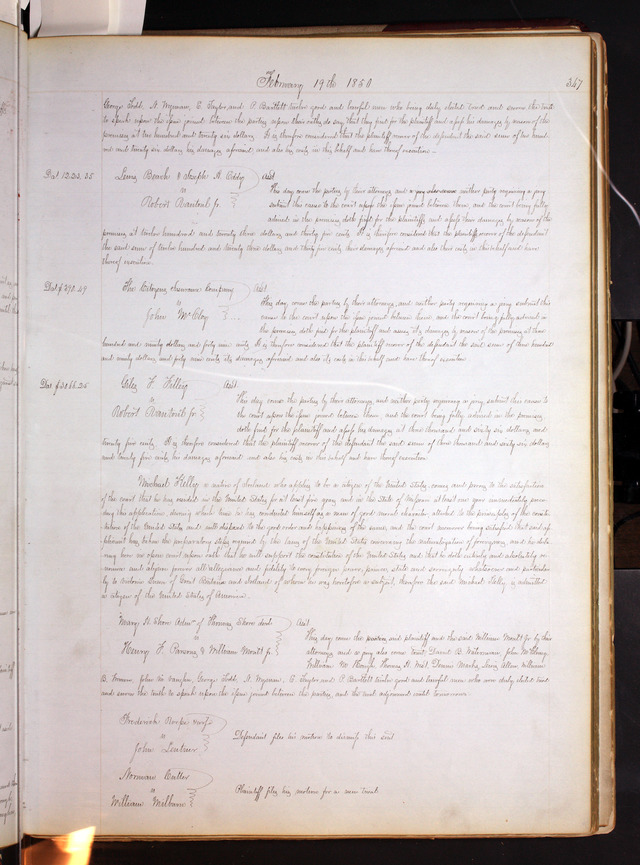 February 19th 1850 347
George Todd, N. Wyman, E. Taylor and P. Bartlett twelve good and lawful men who being duly elected tried and sworn the truth
to speak upon the issue joined between the parties upon their oaths do say that they find for the plaintiff and assess his damages by reason of the
premises at two hundred and twenty six dollars. It is therefore considered that the plaintiff recover of the defendant the said sum of two hund
red and twenty six dollars his damages aforesaid, and also his costs in this behalf and have thereof execution.
Lewis Beach & Joseph A. Eddy Asst
vs This day come the parties by their attorneys and neither party requiring a jury
Robert Rantoul Jr. submit this cause to the court upon the issue joined between them, and the court being fully
advised in the premises doth find for the plaintiffs and assess their damages by reason of the
premises at twelve hundred and twenty three dollars and thirty five cents. It is therefore considered that the plaintiffs recover of the defendant
the said sum of twelve hundred and twenty three dollars and thirty five cents their damages aforesaid and also their costs in this behalf and have
thereof execution.
The Citizens Insurance Company Asst
vs This day come the parties by their attorneys, and neither party requiring a jury submit this
John McCloy cause to the court upon the issue joined between them and the court being fully advised in
the premises doth find for the plaintiff and assess its damages by reason of the premises at three
hundred and ninety dollars and forty nine cents. It is therefore considered that the plaintiff recover of the defendant the said sum of three hundred
and ninety dollars and forty nine cents its damages aforesaid and also its costs in this behalf and have thereof execution
Giles F. Filley Asst
vs This day come the parties by their attorneys, and neither party requiring a jury, submit this cause to
Robert Rantoul Jr. the court upon the issue joined between them, and the court being fully advised in the premises
doth find for the plaintiff and assess his damages at three thousand and sixty six dollars and
twenty five cents. It is therefore considered that the plaintiff recover of the defendant the said sum of three thousand and sixty six dollars
and twenty five cents his damages aforesaid and also his costs in this behalf and have thereof execution.
Michael Kelly a native of Ireland who applies to be a citizen of the United States, comes and proves to the satisfaction
of the court that he has resided in the United States for at least five years and in the State of Missouri at least one year immediately prece
ding this application during which time he has conducted himself as a man of good moral character attached to the principles of the consti
tution of the United States and well disposed to the good order and happiness of the same; and the court moreover being satisfied that said ap
plicant has taken the preparatory steps required by the laws of the United States concerning the naturalization of foreigners, and he decla
ring here in open court upon oath that he will support the constitution of the United States and that he doth entirely and absolutely re
nounce and abjure forever all allegiance and fidelity to every foreign prince, power, state and sovereignty whatsoever and particular
ly to Victoria Queen of Great Britain and Ireland of whom he was heretofore a subject, therefore the said Michael Kelly is admitted
a citizen of the United States of America.
Mary A. Shore Admx of Thomas Shore decd Asst
vs This day come the parties said plaintiff and the said William Moult Jr. by their
Henry F. Parsons & William Moult Jr. attorneys and a jury also come to wit, David B. Waterman, John McIlvany,
William
B. Freeman, John Van George Todd, N. Wyman, E. Taylor and P. Bartlett twelve good and lawful men who were duly elected tried
and sworn the truth to speak upon the issue joined between the parties, and the trial adjourned until tomorrow.
Frederick
vs Defendant files his motion to dismiss this suit
John
Norman Cutter
vs Plaintiff files his motion for a new trial
William Milburn